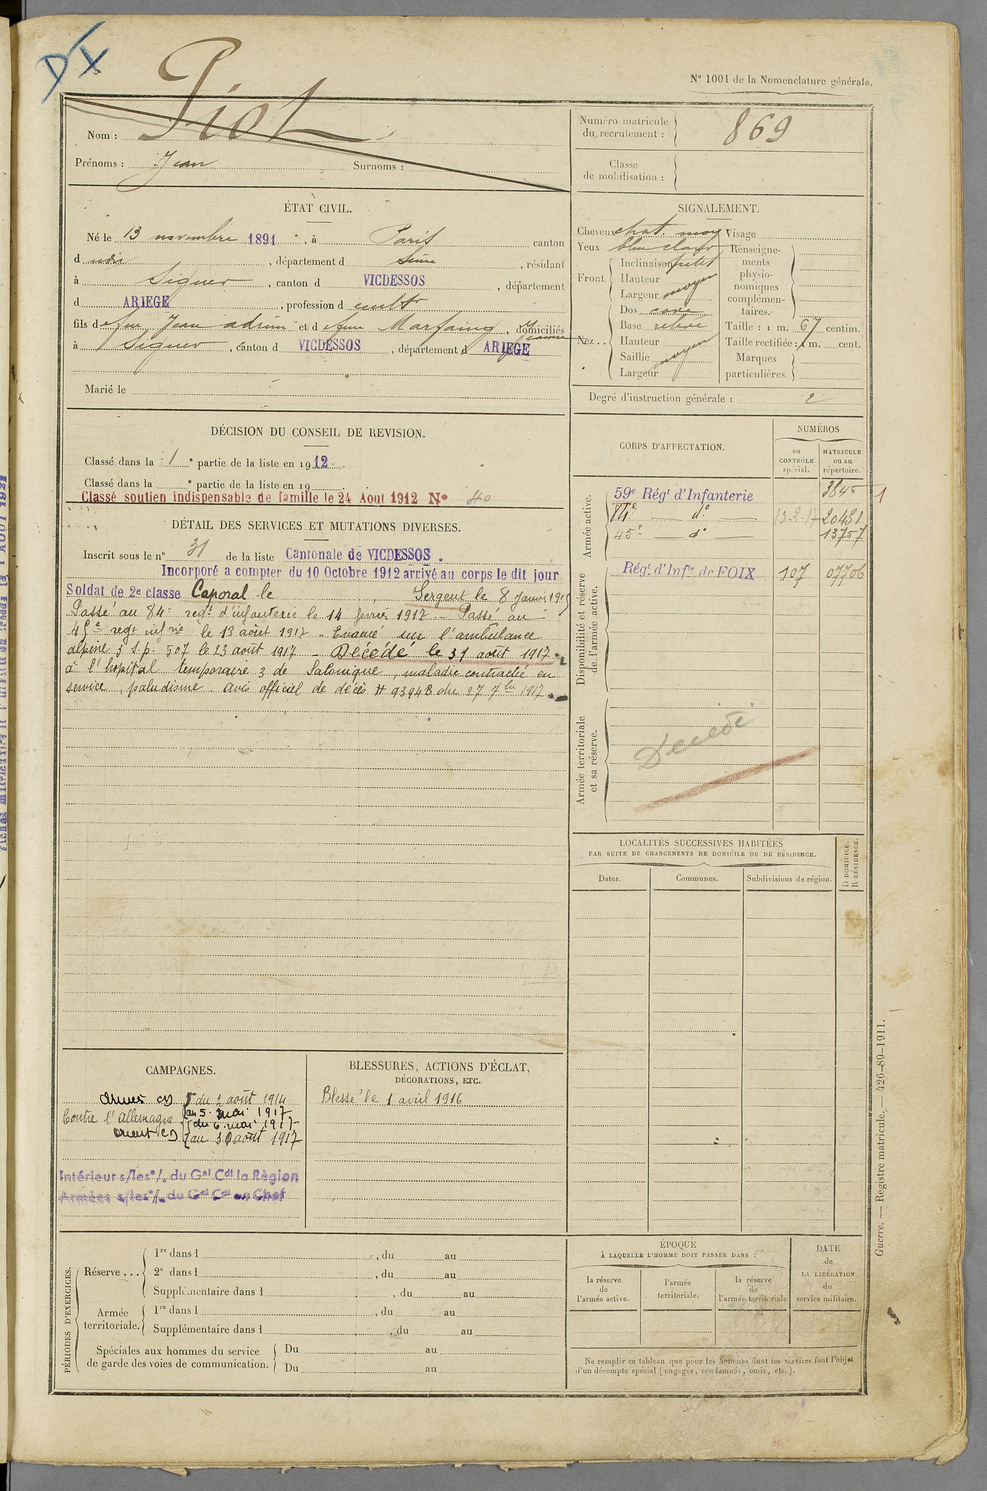 DX
N° 1001 de la Nomenclature générale.
Nom : Piot
Prénoms : Jean Surnoms :
Numéro matricule du recrutement : 869
Classe de mobilisation :
ÉTAT CIVIL.
Né le 13 novembre 1891, à Paris canton
d , département d Seine, résidant
à Siguer, canton d VICDESSOS, département
d ARIEGE, profession d cultr
fils de feu Jean adrien et d Marfaing Jeanne, domiciliés
à Siguer, canton d VICDESSOS, département d ARIEGE
Marié le
SIGNALEMENT.
Cheveux chat. moy Visage
Yeux bleu clair Renseigne-
Front. Inclinaison ments
Hauteur physio-
Largeur moyen nomiques
complémen-
Dos cave taires.
Nez... Base relevé Taille : 1 m. 67 centim.
Hauteur Taille rectifiée : 1 m. cent.
Saillie moyen Marques
Largeur particulières.
Degré d'instruction générale : 2
DÉCISION DU CONSEIL DE REVISION.
Classé dans la 1e partie de la liste en 1912.
Classé dans la e partie de la liste en 19
Classé soutien indispensable de famille le 24 Aout 1912 N° 40
DÉTAIL DES SERVICES ET MUTATIONS DIVERSES.
Inscrit sous le n° 31 de la liste Cantonale de VICDESSOS.
Incorporé a compter du 10 Octobre 1912 arrivé au corps le dit jour
Soldat de 2e classe Caporal le Sergent le 8 Janvr 191
Passé au 84e regt d'infanterie le 14 fevrier 1917 - Passé au
45e regt infrie le 13 août 1917 - Evacué sur l'ambulance
alpine 3 s.p. 507 le 23 août 1917 - Décédé le 31 août 1917
à l'hopital temporaire 3 de Salonique, maladie contractée en
service, paludisme. avis officiel de décès H 9394B du 27 7bre 1917.
CORPS D'AFFECTATION.
NUMÉROS
au CONTRÔLE spécial.
MATRICULE ou au répertoire.
Armée active.
59e Régt d'Infanterie 3845
84e — do — 13-2-17 20481
45e — do — 13757
1
Disponibilité et réserve de l'armée active.
Régt d'Infie de FOIX 107 07706
Armée territoriale et sa réserve.
Décédé
LOCALITÉS SUCCESSIVES HABITÉES
PAR SUITE DE CHANGEMENTS DE DOMICILE OU DE RÉSIDENCE.
Dates. Communes. Subdivisions de région. D DOMICILE. R RÉSIDENCE.
CAMPAGNES.
Armées CD du 2 août 1914
au 5 mai 1917
Contre l'Allemagne du 6 mai 1917
orient CD au 30 août 1917
Intérieur s/les o/. du Gal Cdt la Région
Armées s/les o/. du Gal Cdt en Chef
BLESSURES, ACTIONS D'ÉCLAT,
DÉCORATIONS, ETC.
Blessé le 1 avril 1916
PÉRIODES D'EXERCICES.
Réserve... 1re dans l , du au
2e dans l , du au
Supplémentaire dans l , du au
Armée territoriale. 1re dans l , du au
Supplémentaire dans l , du au
Spéciales aux hommes du service Du au
de garde des voies de communication. Du au
ÉPOQUE
À LAQUELLE L'HOMME DOIT PASSER DANS :
la réserve de l'armée active.
l'armée territoriale.
la réserve de l'armée territoriale
DATE de LA LIBÉRATION du service militaire.
Ne remplir ce tableau que pour les hommes dont les services font l'objet
d'un décompte spécial (engagés, condamnés, omis, etc.).
Guerre. — Registre matricule. — 426-89-1911.